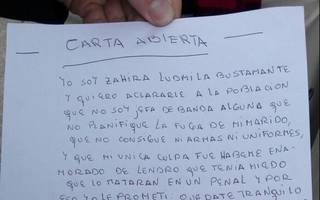 CARTA ABIERTA
YO SOY ZAHIRA LUDMILA BUSTAMANTE
Y QUIERO ACLARARLE A LA POBLACION
QUE NO SOY JEFA DE BANDA ALGUNA QUE
NO PLANIFIQUE LA FUGA DE MI MARIDO,
QUE NO CONSIGUE NI ARMAS NI UNIFORMES,
Y QUE MI UNICA CULPA FUE HABEME ENA-
MORADO DE LENDRO QUE TENIA MIEDO
QUE LO MATARAN EN UN PENAL Y POR
ESO YO LE PROMETI. QUEDATE TRANQUILO